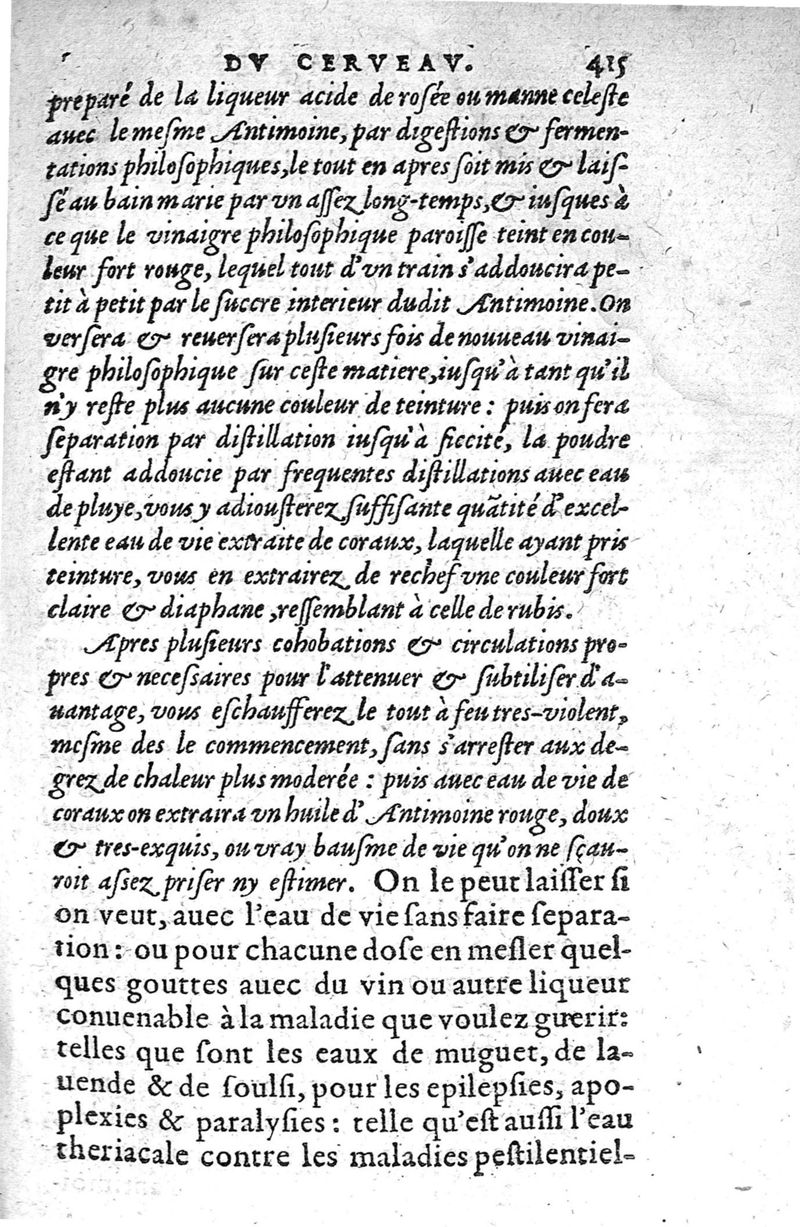 DV CERVEAV. 415
preparé de la liqueur acide de rosée ou manne celeste
auec le mesme Antimoine, par digestions & fermen-
tations philosophiques, le tout en apres soit mis & lais-
sé au bain marie par vn assez long-temps, & iusques à
ce que le vinaigre philosophique paroisse teint en cou-
leur fort rouge, lequel tout d'vn train s'addoucira pe-
tit à petit par le succre interieur dudit Antimoine. On
versera & reuersera plusieurs fois de nouueau vinai-
gre philosophique sur ceste matiere, iusqu'à tant qu'il
n'y reste plus aucune couleur de teinture: puis on fera
separation par distillation iusqu'à siccité, la poudre
estant addoucie par frequentes distillations auec eau
de pluye, vous y adiousterez suffisante quãtité d'excel-
lente eau de vie extraite de coraux, laquelle ayant pris
teinture, vous en extrairez de rechef vne couleur fort
claire & diaphane, ressemblant à celle de rubis.
Apres plusieurs cohobations & circulations pro-
pres & necessaires pour l'attenuer & subtiliser d'a-
uantage, vous eschaufferez le tout à feu tres-violent,
mesme des le commencement, sans s'arrester aux de-
grez de chaleur plus moderée: puis auec eau de vie de
coraux on extraira vn huile d'Antimoine rouge, doux
& tres-exquis, ou vray bausme de vie qu'on ne sçau-
roit assez priser ny estimer. On le peut laisser si
on veut, auec l'eau de vie sans faire separa-
tion: ou pour chacune dose en mesler quel-
ques gouttes auec du vin ou autre liqueur
conuenable à la maladie que voulez guerir:
telles que sont les eaux de muguet, de la-
uende & de soulsi, pour les epilepsies, apo-
plexies & paralysies: telle qu'est aussi l'eau
theriacale contre les maladies pestilentiel-